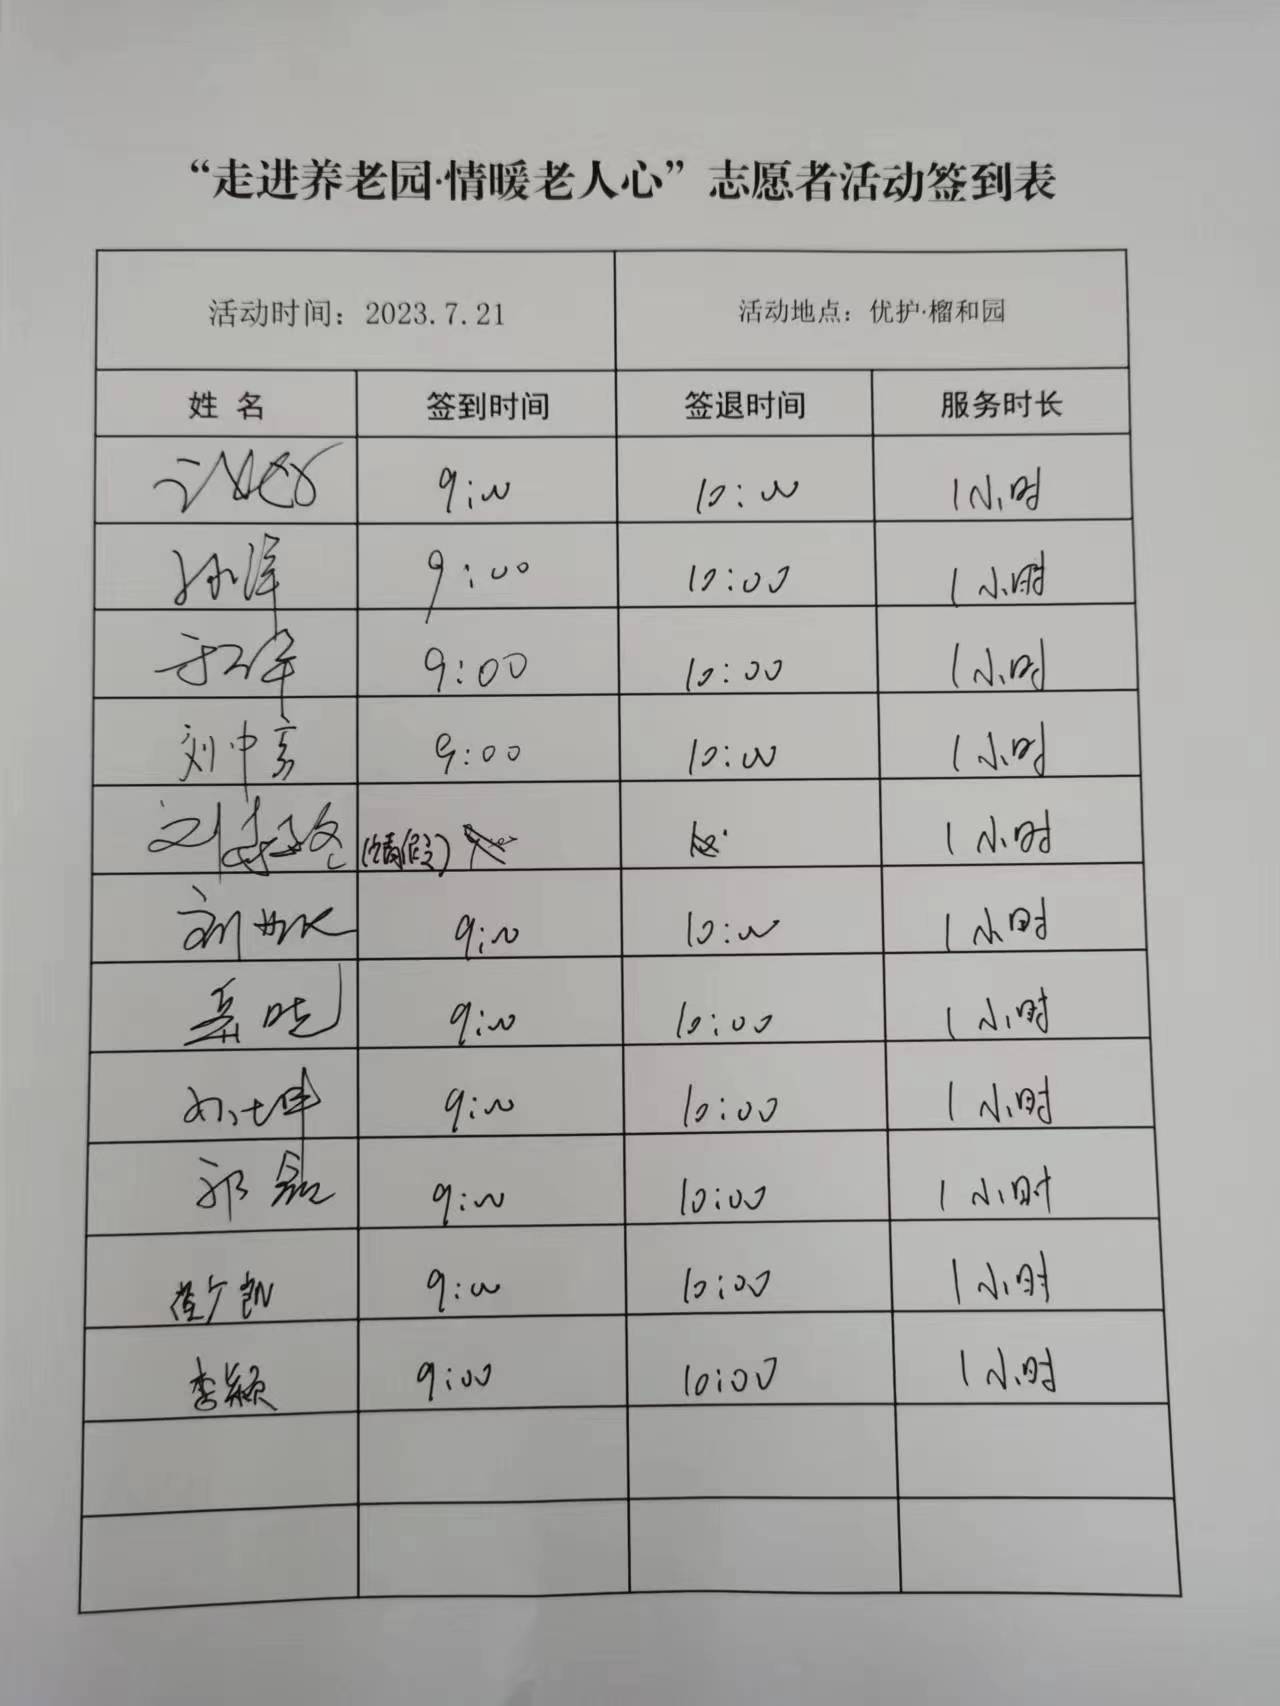 “走进养老园·情暖老人心”志愿者活动签到表
活动时间：2023.7.21 活动地点：优护·榴和园
姓 名 签到时间 签退时间 服务时长
9:00 10:00 1小时
孙洋 9:00 10:00 1小时
9:00 10:00 1小时
刘中亮 9:00 10:00 1小时
刘 (请假) 1小时
刘 9:00 10:00 1小时
9:00 10:00 1小时
坤 9:00 10:00 1小时
郭磊 9:00 10:00 1小时
9:00 10:00 1小时
李颖 9:00 10:00 1小时